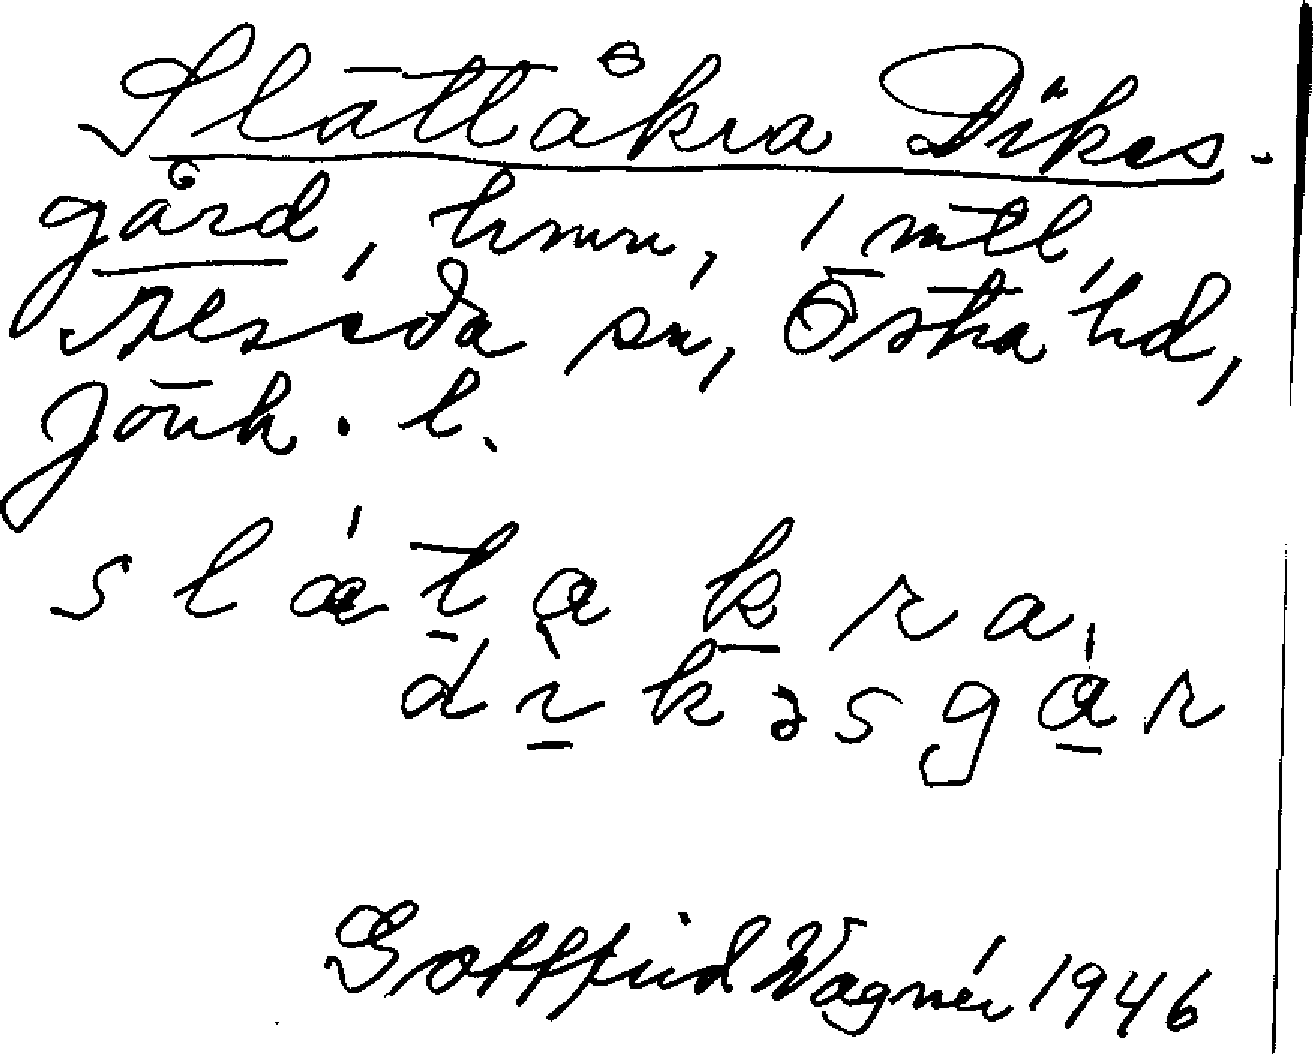 Slättåkra Dikes-
gård, hmn, 1 mtl,
Nesåda sn, Östra hd,
Jönk. l.
slæ̍t̠ɑk̠ra,
dɪ̠̀kəsgɑ̠̍r
Gottfrid Wagnér 1946